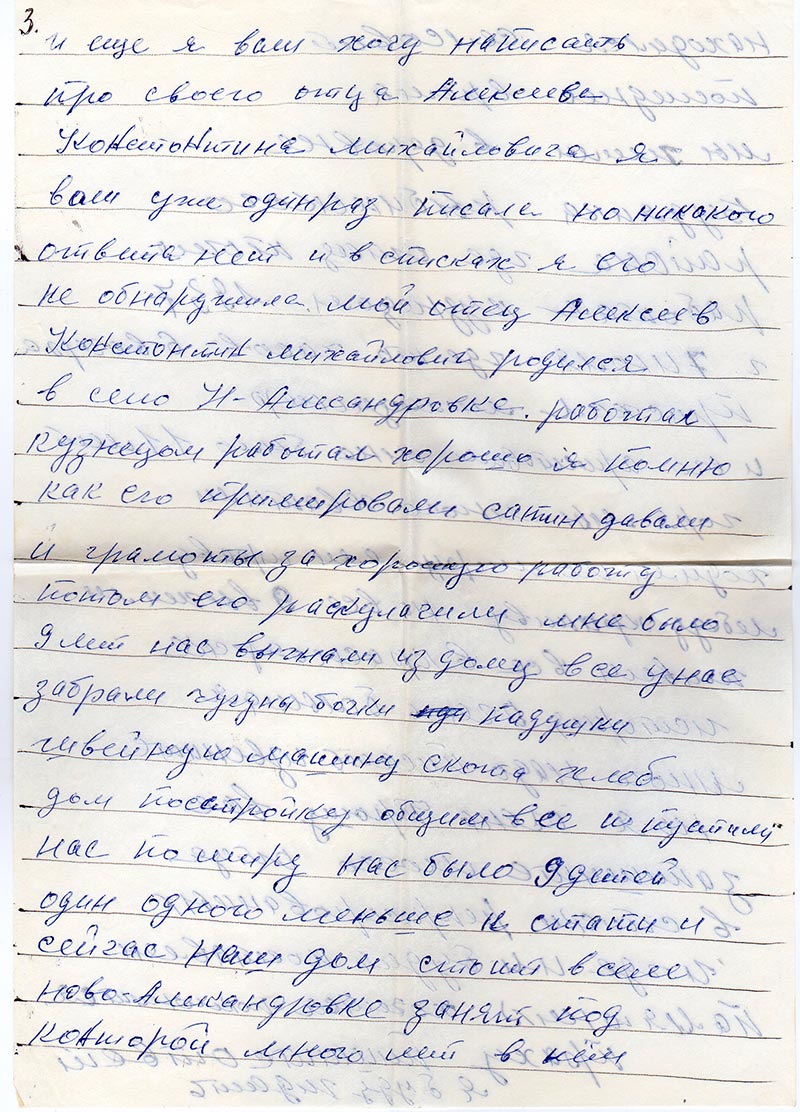 3.
и еще я вам хочу написать
про своего отца Алексева
Констонтина михайловича я
вам уже одинраз писала но никакого
ответа нет и в списках я его
не обнаружила. мой отец Алексеев
Констонтин михайлович родился
в село Н-Алесандровке. работал
кузнецом работал хорошо я помню
как его примировали сатин давали
и грамоты за хорошую работу
потом его раскулачили мне было
9 лет нас выгнали из дому все у нас
забрали чугуны бочки падушки
швейную машину скота хлеб
дом посстройку общим все и пустили
нас по миру нас было 9 детей
один одного меньше к стати и
сейчас наш дом стоит в селе
ново Алкандровке занят под
канторой много лет в нём